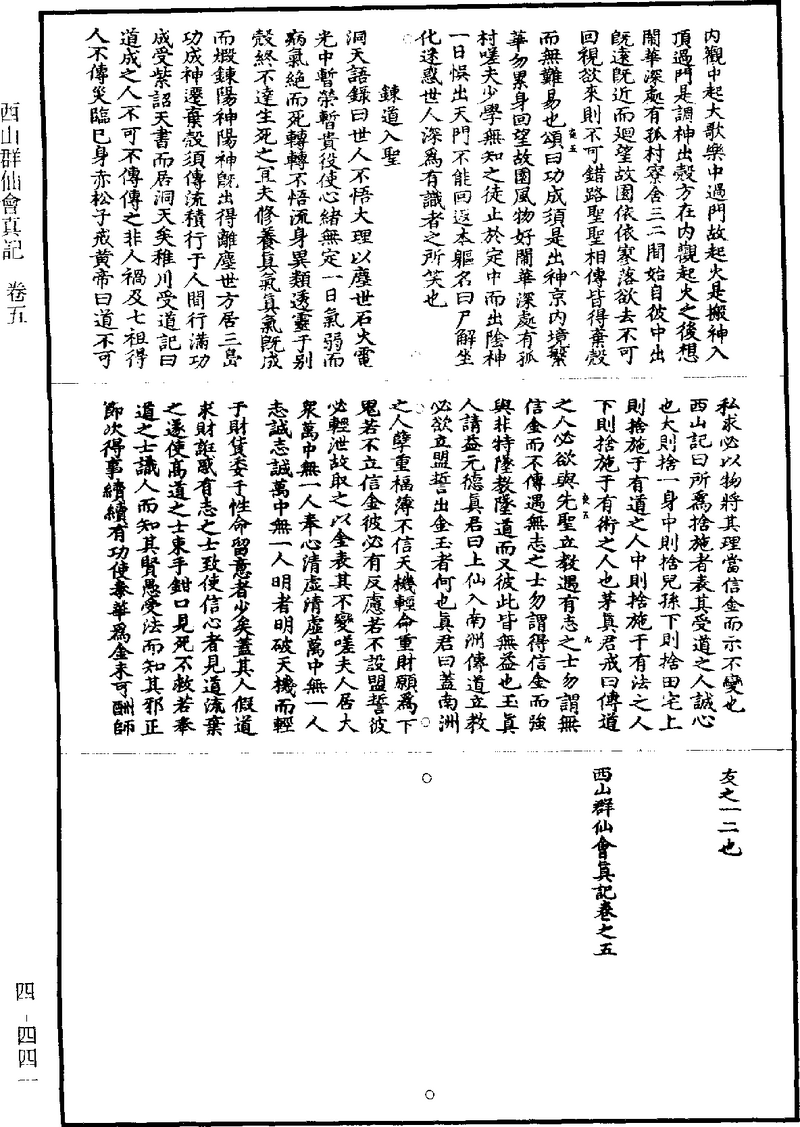 內觀中起大歌樂中過門故起火是搬神入
頂過門是調神出殼方在內觀起火之後想
閙華深處有孤村寮舍三二間始自彼中出
旣遠旣近而廻望故園依依家落欲去不可
回視欲來則不可錯路聖聖相傳皆得棄殼
而無難易也頌曰功成須是出神京內境繁
華勿累身回望故園風物好閙華深處有孤
村嗟夫少學無知之徒止於定中而出陰神
一日悞出天門不能回返本軀名曰尸解坐
化迷惑世人深爲有識者之所笑也
鍊道入聖
洞天語錄曰世人不悟大理以塵世石火電
光中暫榮暫貴役使心緒無定一日氣弱而
病氣絕而死轉轉不悟流身異類透靈于别
殼終不達生死之冝夫修養真氣真氣旣成
而煅鍊陽神陽神旣出得離塵世方居三島
功成神遷棄殼須傳流積行于人間行滿功
成受紫詔天書而居洞天矣稚川受道記曰
道成之人不可不傳傳之非人禍及七祖得
人不傳災臨已身赤松子戒黃帝曰道不可
私求必以物將其理當信金而示不變也
西山記曰所爲捨施者表其受道之人誠心
也大則捨一身中則捨兒孫下則捨田宅上
則捨施于有道之人中則捨施于有法之人
下則捨施于有術之人也茅真君戒曰傳道
之人必欲與先聖立教遇有志之士勿謂無
信金而不傳遇無志之士勿謂得信金而強
與非特墜教墮道而又彼此皆無益也玉真
人請益元德真君曰上仙入南洲傳道立教
必欲立盟誓出金玉者何也真君曰蓋南洲
之人孽重福薄不信天機輕命重財願爲下
鬼若不立信金彼必有反慮若不設盟誓彼
必輕泄故取之以金表其不變嗟夫人居大
衆萬中無一人奉心清虛清虛萬中無一人
志誠志誠萬中無一人明者明破天機而輕
于財貨委于性命留意者少矣蓋其人假道
求財誑惑有志之士致使信心者見道流棄
之遂使髙道之士束手鉗口見死不救若奉
道之士識人而知其賢愚受法而知其邪正
節次得事續續有功使泰華爲金未可酬師
友之一二也
西山群仙會真記卷之五
西山群仙會真記　卷五
四-四四一